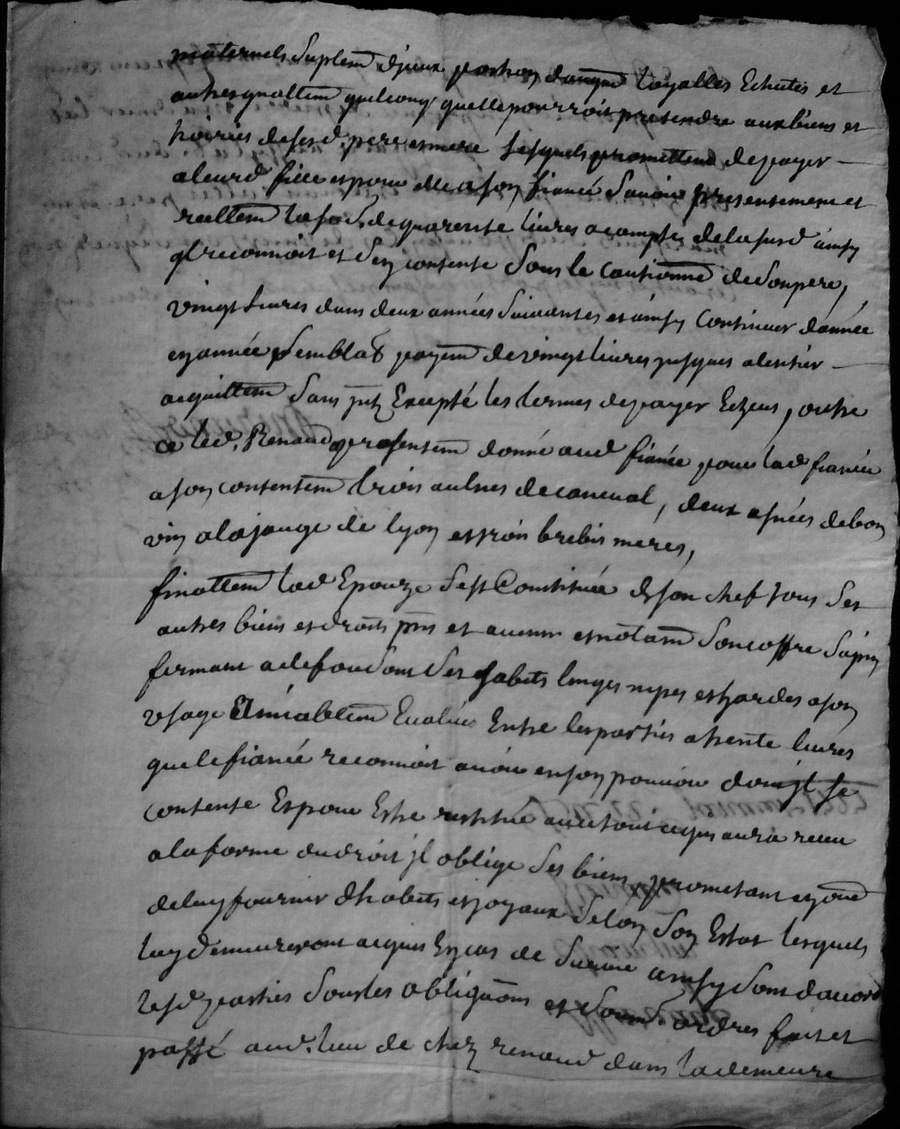 maternels suplem d'jceux portion daugm loyalles Echutes et
autres qualtem quelconq quelle pourroit pretendre aux biens et
hoiries de sesd. pere et mere lesquels promettent de payer
a leurd fille et pour elle a son fiancé Scavoir presentement et
reellem la so.e de quarente livres a compte de lasusd ainsy
ql reconnoit et s'en contente sous le Cautionne de son pere,
vingt livres dans deux années suivantes et ainsy Continuer d'année
en année semblab payem de vingt livres jusques a lentier
acquittem sans jnt Excepté les termes de payer Echeus, outre
ce led. Renaud presentem donne aud fiancé pour lad fiancée
a son contentem trois aulnes de caneval, deux asnées de bon
vin a la jauge de lyon et trois brebis meres,
finallem lad Epouze s'est Constituée de son chef tous ses
autres biens et droits pns et avenir et notam son coffre sapin
fermant a clef ou sont ses habits linges nipes et hardes a son
usage Amiablem Evalués Entre les parties a trente livres
que le fiancé reconnoit avoir en son pouvoir dont jl se
contente Et pour Estre restitué avec tout ce qu'il aura receu
a la forme du droit jl oblige ses biens, prometant en outre
de luy fournir d'habits et joyaux selon son Estat lesquels
luy demeureront acquis En cas de survie ainsy sont d'accord
lesd parties sous les obligaons et ordres fait et
passé aud. lieu de chez renaud dans la demeure